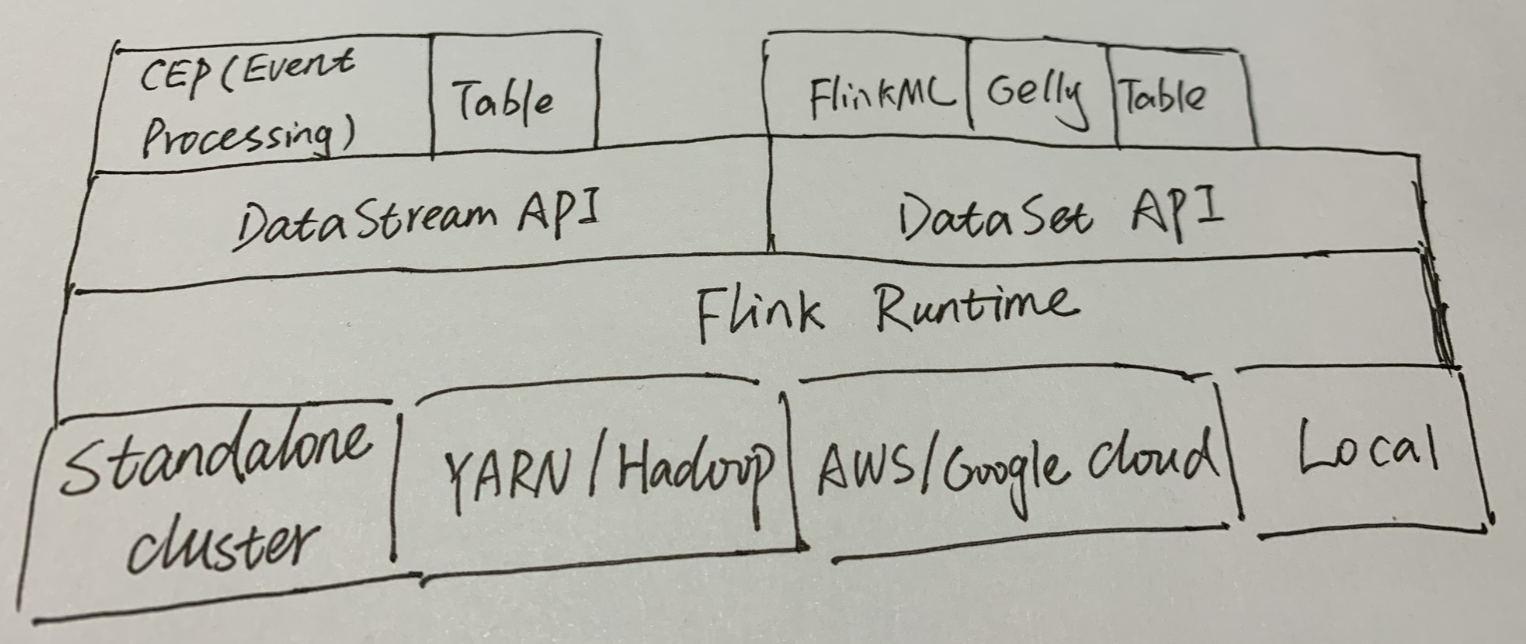 CEP(Event
Processing)
Table
FlinkML
Gelly
Table
DataStream API
DataSet API
Flink Runtime
Standalone
cluster
YARN/Hadoop
AWS/Google cloud
Local